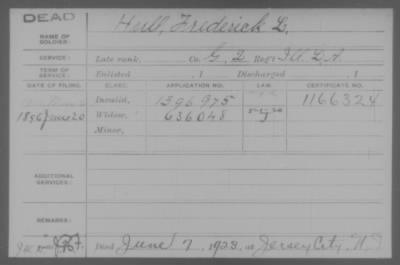 DEAD
NAME OF SOLDIER: Hull, Frederick L.
SERVICE: Late rank, Co. G, 2 Reg't Ill. L.A.
TERM OF SERVICE: Enlisted , 1 Discharged , 1
DATE OF FILING. CLASS. APPLICATION NO. LAW. CERTIFICATE NO.
Invalid, 1396975 1166324
June 20 Widow, 636048
Minor,
ADDITIONAL SERVICES:
REMARKS:
Died June 7, at Jersey City, N.J.